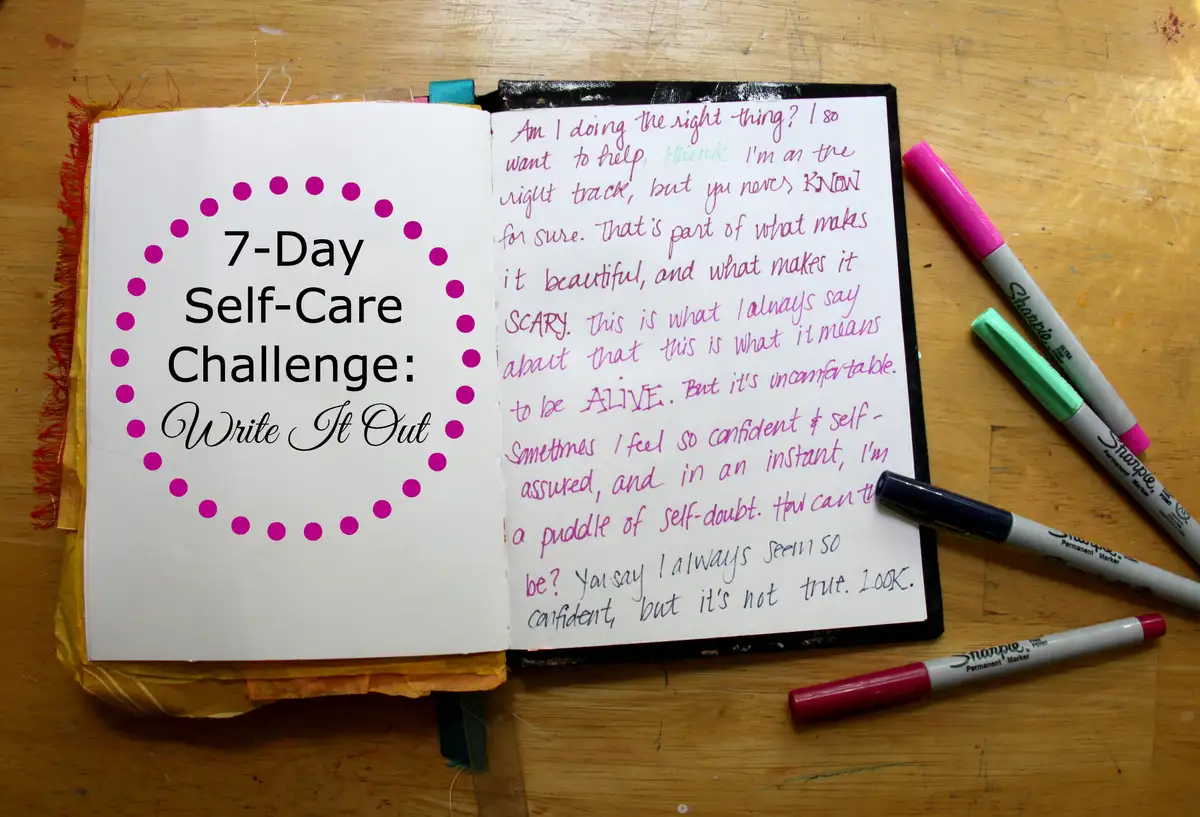 7-Day
Self-Care
Challenge:
Write It Out
Am I doing the right thing? I so
want to help. I think I'm on the
right track, but you never KNOW
for sure. That's part of what makes
it beautiful, and what makes it
SCARY. This is what I always say
about that this is what it means
to be ALIVE. But it's uncomfortable.
Sometimes I feel so confident & self-
assured, and in an instant, I'm
a puddle of self-doubt. How can th
be? You say I always seem so
confident, but it's not true. LOOK.
Sharpie
Sharpie
Sharpie
Permanent Marker
Sharpie
Permanent Marker